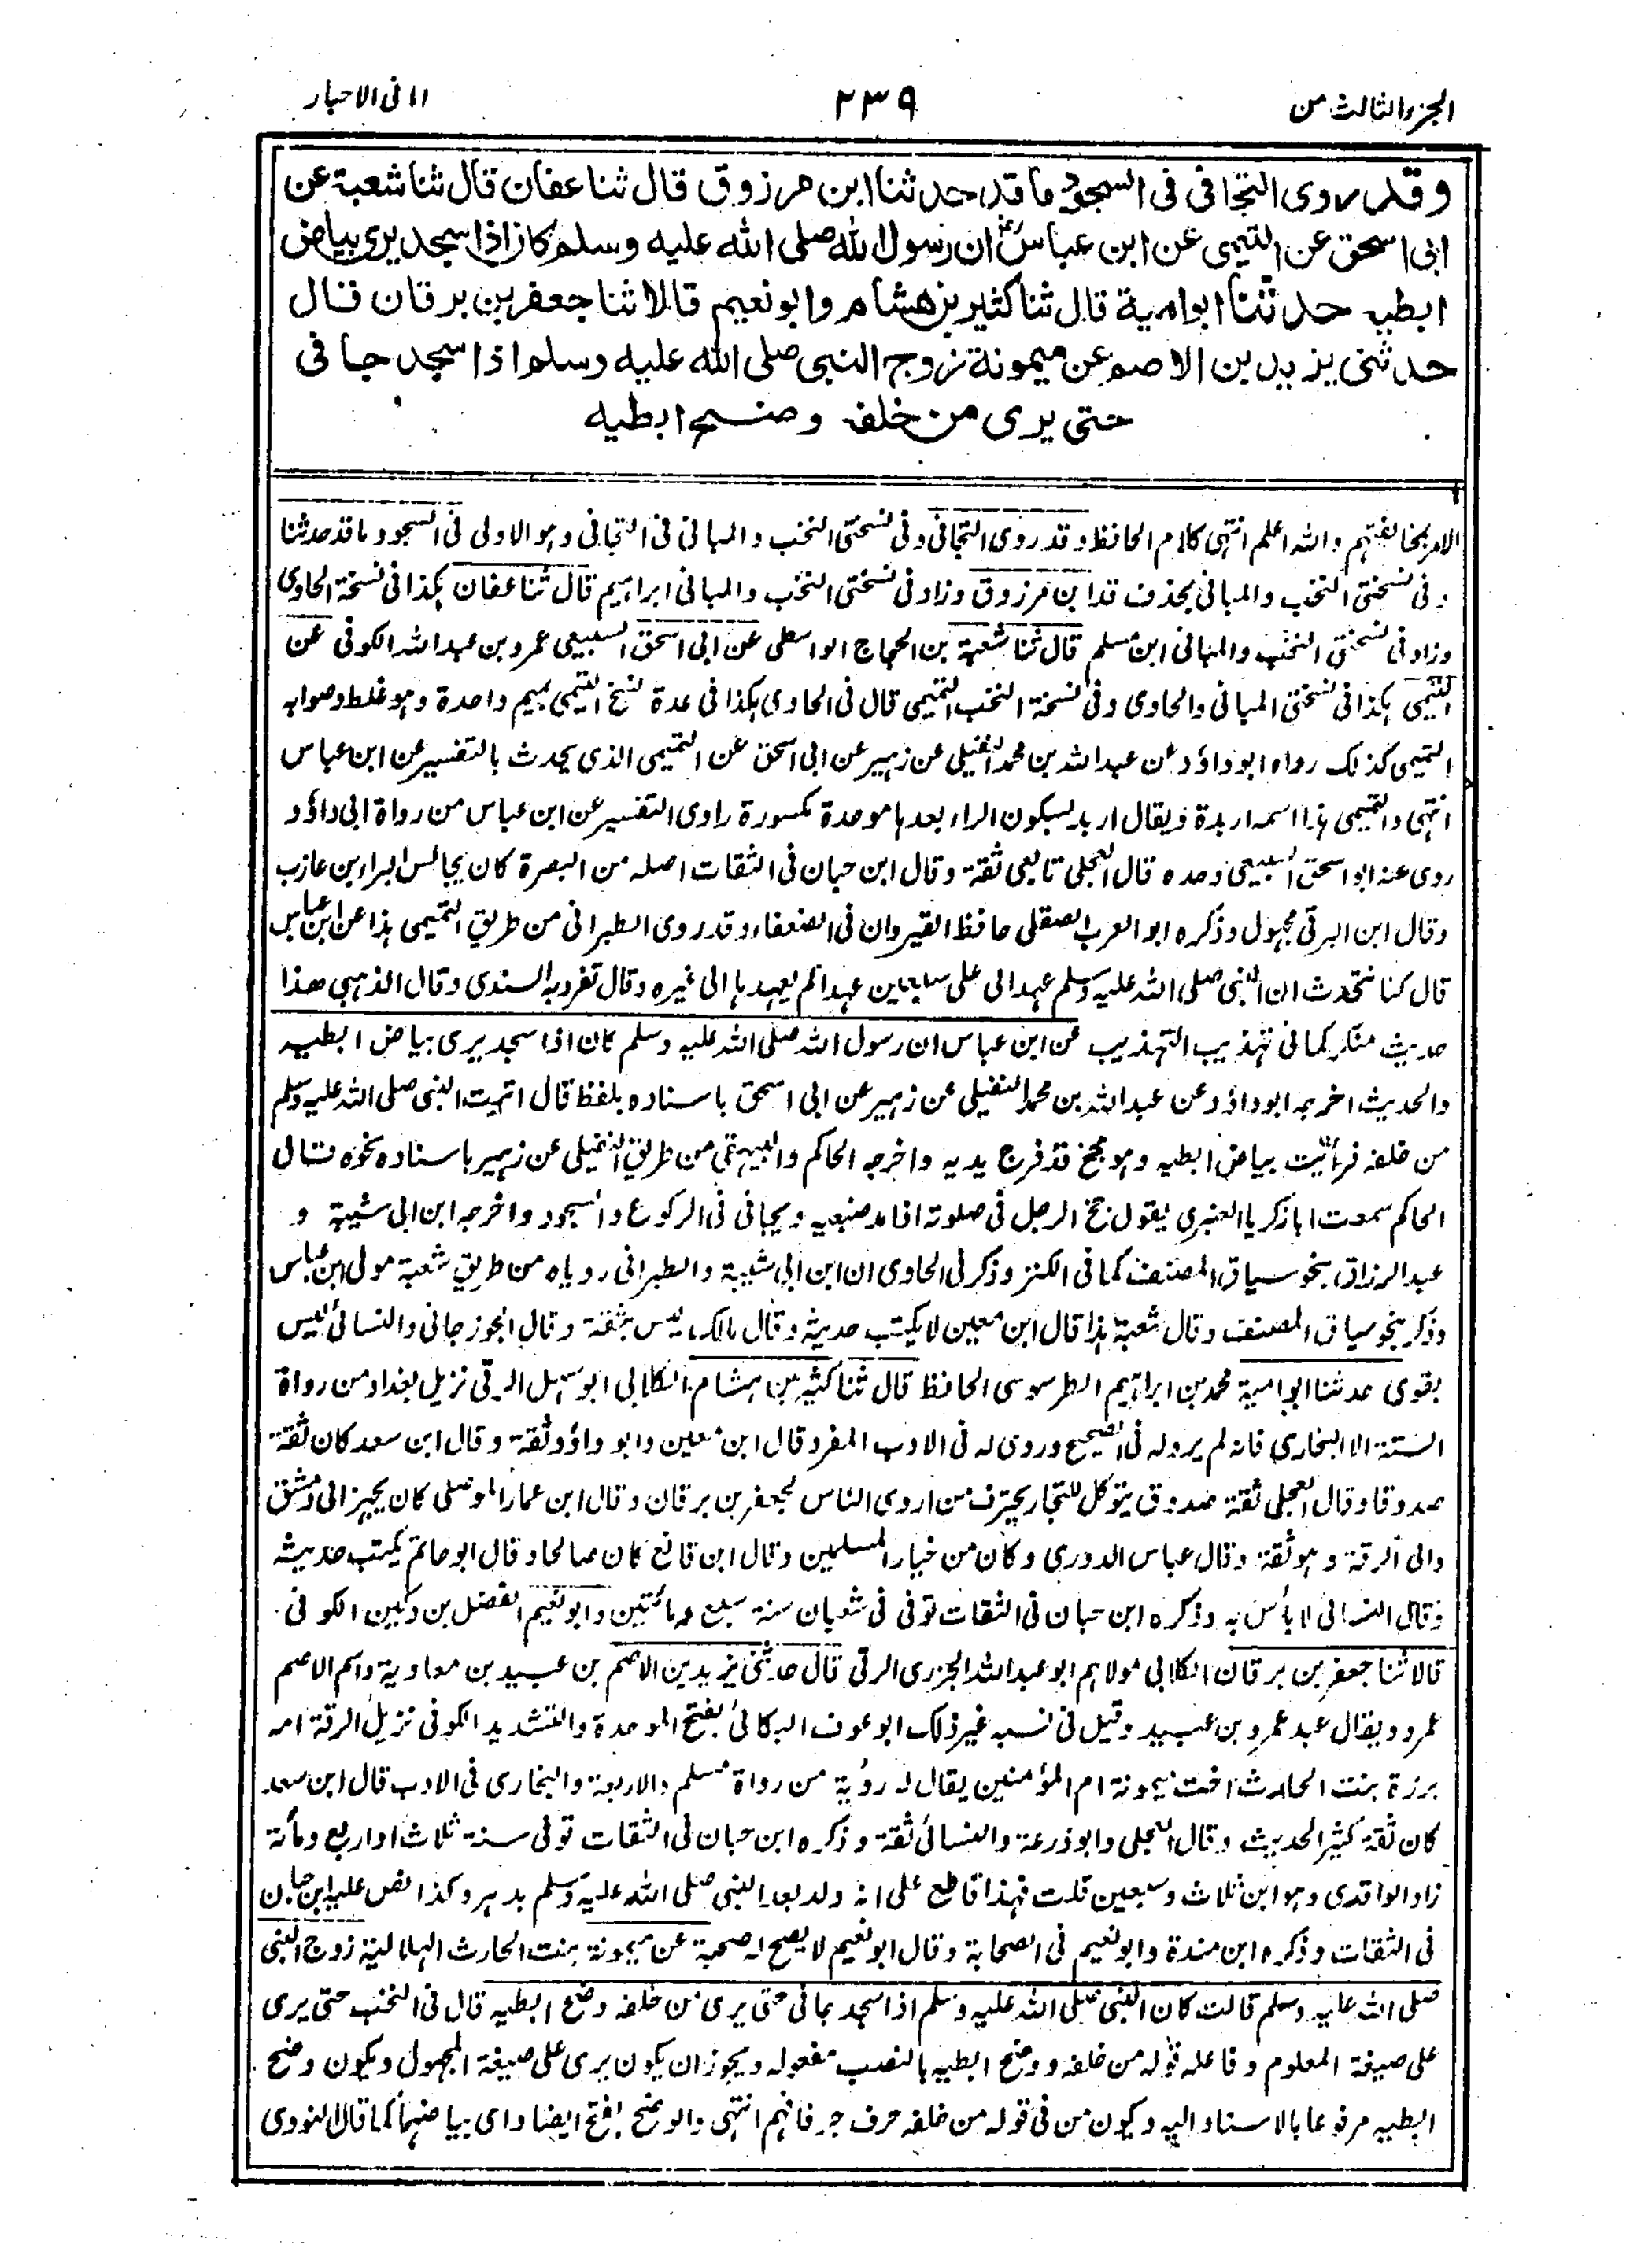 الجزء الثالث من ٢٣٩ امانى الاحبار
وقد روى التجافى فى السجود ما قد حدثنا ابن مرزوق قال ثنا عفان قال ثنا شعبة عن
ابى اسحق عن التيمى عن ابن عباسؓ ان رسول الله صلى الله عليه وسلم كان اذا سجد يرى بياض
ابطيه حدثنا ابوامية قال ثنا كثير بن هشام وابونعيم قالا ثنا جعفر بن برقان قال
حدثنى يزيد بن الاصم عن ميمونة زوج النبى صلى الله عليه وسلم اذا سجد جافى
حتى يرى من خلفه وضح ابطيه
الامر بمخالفتهم والله اعلم انتهى كلام الحافظ وقد روى التجافى وفى نسختى النخب والمبانى فى التجافى وهو الاولى فى السجود ما قد حدثنا
وفى نسختى النخب والمبانى بحذف قد ابن مرزوق وزاد فى نسختى النخب والمبانى ابراهيم قال ثنا عفان هكذا فى نسخة الحاوى
وزاد فى نسختى النخب والمبانى ابن مسلم قال ثنا شعبة بن الحجاج الواسطى عن ابى اسحق السبيعى عمرو بن عبدالله الكوفى عن
التيمى هكذا فى نسختى المبانى والحاوى وفى نسخة النخب التميمى قال فى الحاوى هكذا فى عدة نسخ التيمى بميم واحدة وهو غلط وصوابه
التميمى كذلك رواه ابوداؤد عن عبدالله بن محمد النفيلى عن زهير عن ابى اسحق عن التميمى الذى يحدث بالتفسير عن ابن عباس
انتهى والتميمى هذا اسمه اربدة ويقال اربد بسكون الراء بعدها موحدة مكسورة راوى التفسير عن ابن عباس من رواة ابى داؤد
روى عنه ابو اسحق السبيعى وحده قال العجلى تابعى ثقة وقال ابن حبان فى الثقات اصله من البصرة كان يجالس البراء بن عازب
وقال ابن البرقى مجهول وذكره ابو العرب الصقلى حافظ القيروان فى الضعفاء وقد روى الطبرانى من طريق التميمى هذا عن ابن عباس
قال كنا نتحدث ان النبى صلى الله عليه وسلم عهد الى على سبعين عهدا لم يعهدها الى غيره وقال تفرد به السندى وقال الذهبى هذا
حديث منكر كما فى تهذيب التهذيب عن ابن عباس ان رسول الله صلى الله عليه وسلم كان اذا سجد يرى بياض ابطيه
والحديث اخرجه ابوداؤد عن عبدالله بن محمد النفيلى عن زهير عن ابى اسحق باسناده بلفظ قال اتيت النبى صلى الله عليه وسلم
من خلفه فرأيت بياض ابطيه وهو مجخ قد فرج يديه واخرجه الحاكم والبيهقى من طريق النفيلى عن زهير باسناده نحوه قال
الحاكم سمعت ابا زكريا العنبرى يقول جخ الرجل فى صلوته اذا مد ضبعيه ويجافى فى الركوع والسجود واخرجه ابن ابى شيبة و
عبدالرزاق بنحو سياق المصنف كما فى الكنز وذكر فى الحاوى ان ابن ابى شيبة والطبرانى روياه من طريق شعبة مولى ابن عباس
وذكر بنحو سياق المصنف وقال شعبة هذا قال ابن معين لا يكتب حديثه وقال مالك ليس بثقة وقال الجوزجانى والنسائى ليس
بقوى حدثنا ابوامية محمد بن ابراهيم الطرسوسى الحافظ قال ثنا كثير بن هشام الكلابى ابوسهل الرقى نزيل بغداد من رواة
الستة الا البخارى فانه لم يرو له فى الصحيح وروى له فى الادب المفرد قال ابن معين وابو داؤد ثقة وقال ابن سعد كان ثقة
صدوقا وقال العجلى ثقة صدوق يتوكل للتجار يحترف من اروى الناس لجعفر بن برقان وقال ابن عمار الموصلى كان يجهز الى دمشق
والى الرقة وهو ثقة وقال عباس الدورى وكان من خيار المسلمين وقال ابن قانع كان صالحا وقال ابوحاتم يكتب حديثه
وقال النسائى لا بأس به وذكره ابن حبان فى الثقات توفى فى شعبان سنة سبع ومائتين وابونعيم الفضل بن دكين الكوفى
قالا ثنا جعفر بن برقان الكلابى مولاهم ابو عبدالله الجزرى الرقى قال حدثنى يزيد بن الاصم بن عبيد بن معاوية واسم الاصم
عمرو ويقال عبد عمرو بن عبيد وقيل فى نسبه غير ذلك ابو عوف البكائى بفتح الموحدة والتشديد الكوفى نزيل الرقة امه
برزة بنت الحارث اخت ميمونة ام المؤمنين يقال له رؤية من رواة مسلم والاربعة والبخارى فى الادب قال ابن سعد
كان ثقة كثير الحديث وقال العجلى وابو زرعة والنسائى ثقة وذكره ابن حبان فى الثقات توفى سنة ثلاث او اربع ومأة
زاد الواقدى وهو ابن ثلاث وسبعين قلت فهذا قاطع على انه ولد بعد النبى صلى الله عليه وسلم بدهر وكذا نص عليه ابن حبان
فى الثقات وذكره ابن مندة وابونعيم فى الصحابة وقال ابونعيم لا يصح له صحبة عن ميمونة بنت الحارث الهلالية زوج النبى
صلى الله عليه وسلم قالت كان النبى صلى الله عليه وسلم اذا سجد جافى حتى يرى من خلفه وضح ابطيه قال فى النخب حتى يرى
على صيغة المعلوم وفاعله قوله من خلفه ووضح ابطيه بالنصب مفعوله ويجوز ان يكون يرى على صيغة المجهول ويكون وضح
ابطيه مرفوعا بالاسناد اليه ويكون من فى قوله من خلفه حرف جر فافهم انتهى والوضح بفتح ايضا داى بياضهما كما قال النووى